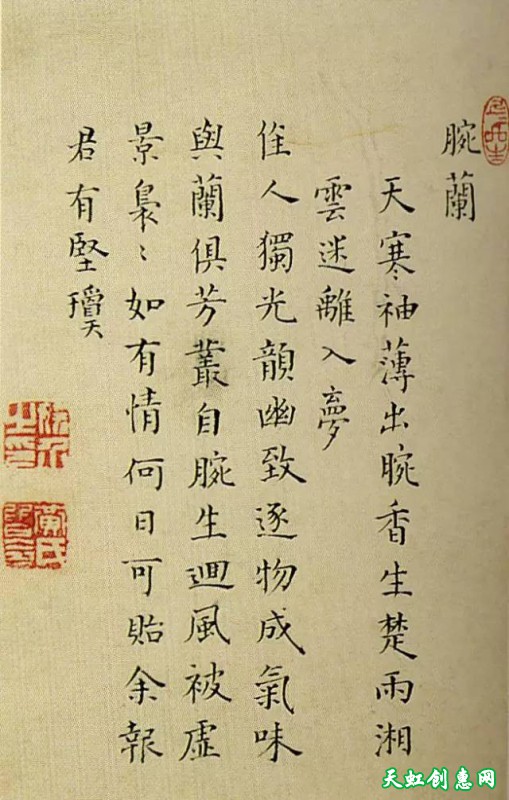 腕蘭
天寒袖薄出腕香生楚雨湘
雲迷離入夢
佳人獨光韻幽致逐物成氣味
與蘭俱芳叢自腕生迴風被虛
景裊〻如有情何日可貽余報
君有堅瓊
天虹创惠网